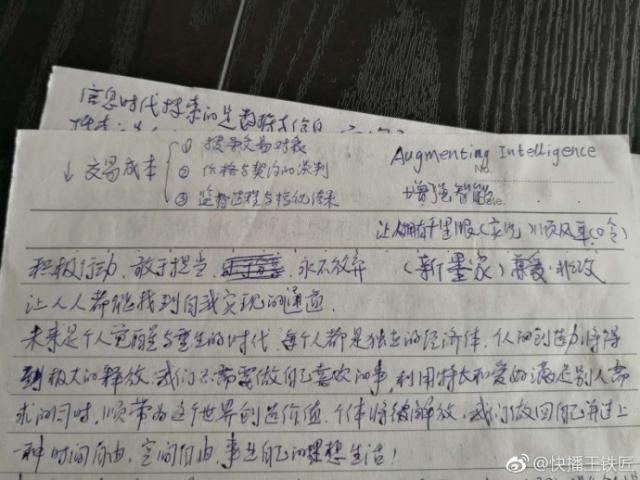 信息时代带来的是
① 搜寻交易对象
↓ 交易成本 ② 价格与契约的谈判
③ 监督过程与检视结果
Augmenting Intelligence
No.
增强智能
Date.
让人拥有千里眼(实况)顺风耳(口令)
积极行动、敢于担当、永不放弃 (新墨家)兼爱·非攻
让人人都能找到自我实现的通道.
未来是个人觉醒与重生的时代,每个人都是独立的经济体,个人的创造力将得
到极大的释放,我们只需要做自己喜欢的事 利用特长和爱好满足别人需
求的同时,顺带为这个世界创造价值,个体将被解放,我们做回自己并过上
一种时间自由,空间自由,事是自己的理想生活!
@快播王铁匠